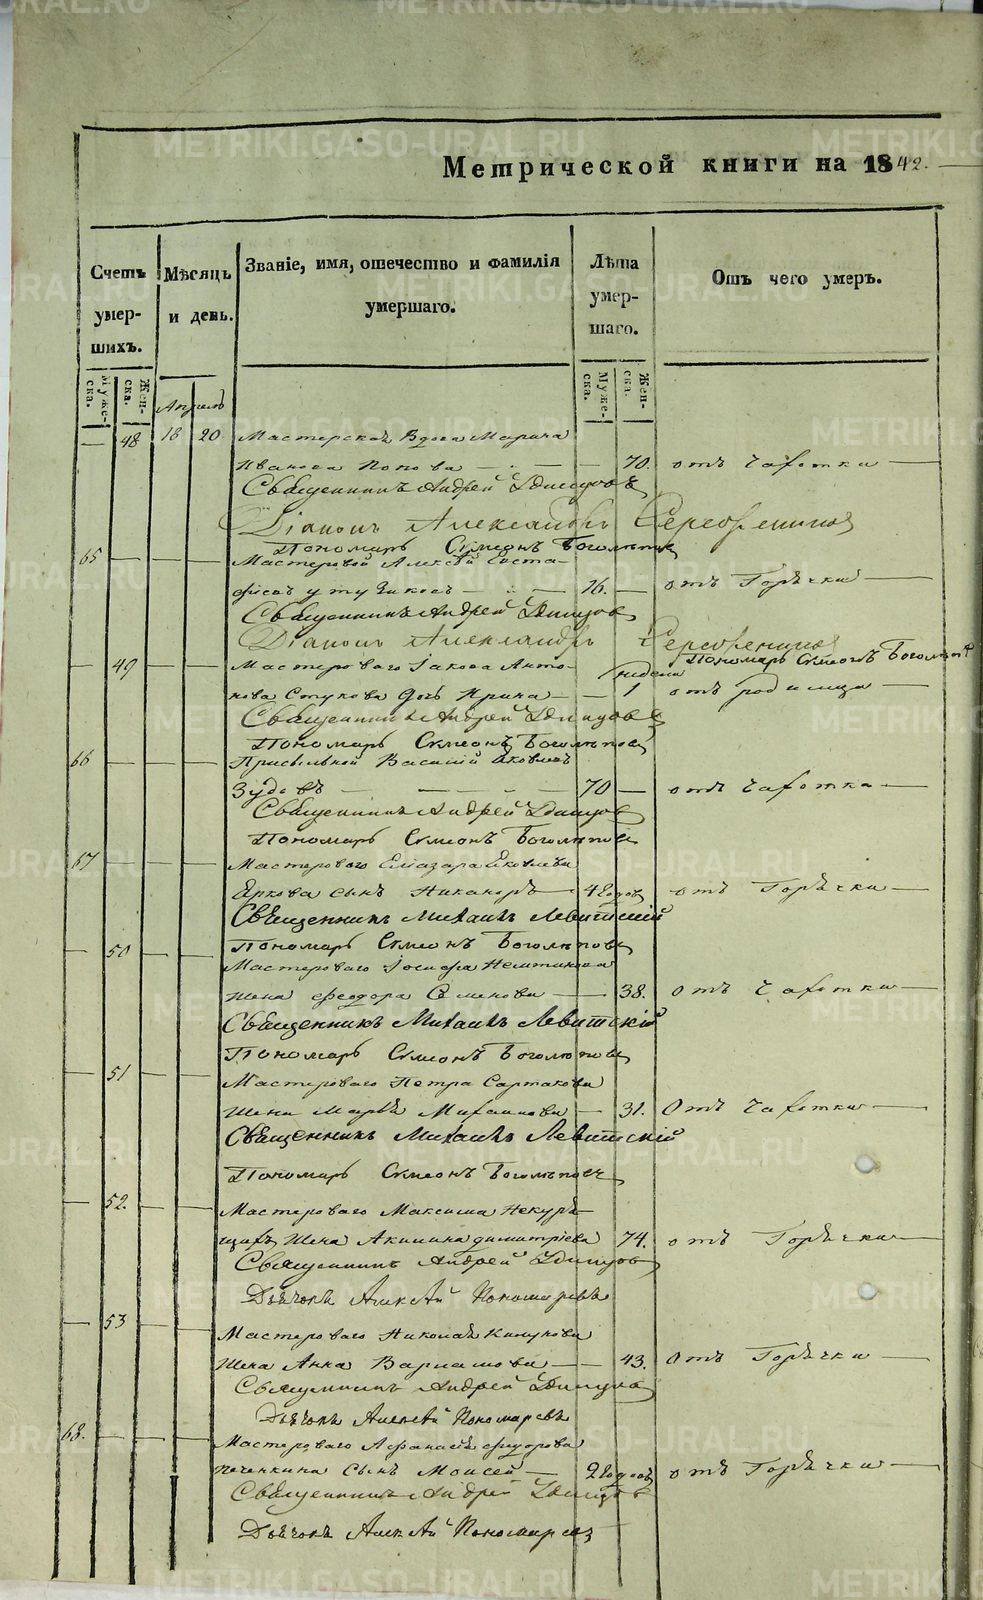 METRIKI.GASO-URAL.RU
Метрической книги на 1842.
Счетъ умер-шихъ.
Мѣсяцъ и день.
Званіе, имя, отечество и фамилія умершаго.
Лѣта умер-шаго.
Отъ чего умеръ.
Муже-ска.
Жен-ска.
Муже-ска.
Жен-ска.
Апрель
— 48 18 20 Мастерская Вдова
Иванова Попова — 70. отъ Чахотки
Священникъ Андрей
Діаконъ Александръ Серебренниковъ
Пономарь Симеонъ Боголѣповъ
65 Мастеровой Алексѣй
16. отъ Горячки
Священникъ Андрей
Діаконъ Александръ Серебренниковъ
Пономарь Симеонъ Боголѣповъ
49 Мастероваго Іакова Анто-
недели
нова Стукова дочь Ирина — 1 отъ родимца
Священникъ Андрей
Пономарь Симеонъ Боголѣповъ
66 Василій Яковлевъ
Зудовъ — 70 — отъ Чахотки
Священникъ Андрей
Пономарь Симеонъ Боголѣповъ
67 Мастероваго Еліазара Яковлева
Яркова сынъ Никаноръ 4 годов отъ Горячки
Священникъ Михаилъ Левитскій
Пономарь Симеонъ Боголѣповъ
50 Мастероваго Іосифа
жена Феодора Семенова — 38. отъ Чахотки
Священникъ Михаилъ Левитскій
Пономарь Симеонъ Боголѣповъ
51 Мастероваго Петра Сартакова
жена Марѳа Михаилова — 31. Отъ Чахотки
Священникъ Михаилъ Левитскій
Пономарь Симеонъ Боголѣповъ
52. Мастероваго Максима
жена Акилина Димитріева 74. отъ Горячки
Священникъ Андрей
Дьячокъ Алексѣй Пономаревъ
53 Мастероваго Николая
жена Анна Варламова — 43. Отъ Горячки
Священникъ Андрей
Дьячокъ Алексѣй Пономаревъ
68. Мастероваго Афанасія Федорова
Печенкина сынъ Моисей — 2 годовъ отъ Горячки
Священникъ Андрей
Дьячокъ Алексѣй Пономаревъ